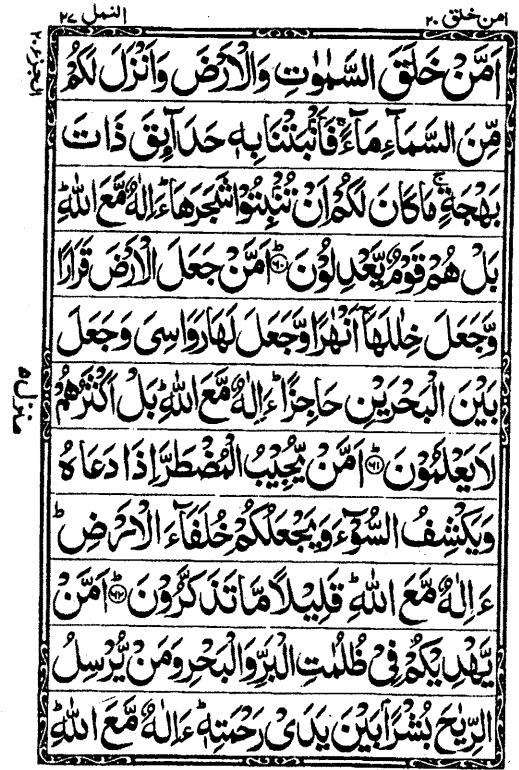 امن خلق ٢٠
النمل ٢٧
الجزء ٢٠
اَمَّنْ خَلَقَ السَّمٰوٰتِ وَالْاَرْضَ وَاَنْزَلَ لَكُمْ
مِّنَ السَّمَآءِ مَآءًۚ فَاَنْۢبَتْنَا بِهٖ حَدَآىِٕقَ ذَاتَ
بَهْجَةٍۚ مَا كَانَ لَكُمْ اَنْ تُنْۢبِتُوْا شَجَرَهَاؕ ءَاِلٰهٌ مَّعَ اللّٰهِؕ
بَلْ هُمْ قَوْمٌ یَّعْدِلُوْنَؕ۶۰ اَمَّنْ جَعَلَ الْاَرْضَ قَرَارًا
وَّجَعَلَ خِلٰلَهَاۤ اَنْهٰرًا وَّجَعَلَ لَهَا رَوَاسِیَ وَجَعَلَ
بَیْنَ الْبَحْرَیْنِ حَاجِزًاؕ ءَاِلٰهٌ مَّعَ اللّٰهِؕ بَلْ اَكْثَرُهُمْ
لَا یَعْلَمُوْنَؕ۶۱ اَمَّنْ یُّجِیْبُ الْمُضْطَرَّ اِذَا دَعَاهُ
وَیَكْشِفُ السُّوْٓءَ وَیَجْعَلُكُمْ خُلَفَآءَ الْاَرْضِؕ
ءَاِلٰهٌ مَّعَ اللّٰهِؕ قَلِیْلًا مَّا تَذَكَّرُوْنَؕ۶۲ اَمَّنْ
یَّهْدِیْكُمْ فِیْ ظُلُمٰتِ الْبَرِّ وَالْبَحْرِ وَمَنْ یُّرْسِلُ
الرِّیٰحَ بُشْرًۢا بَیْنَ یَدَیْ رَحْمَتِهٖؕ ءَاِلٰهٌ مَّعَ اللّٰهِؕ
منزل ٥